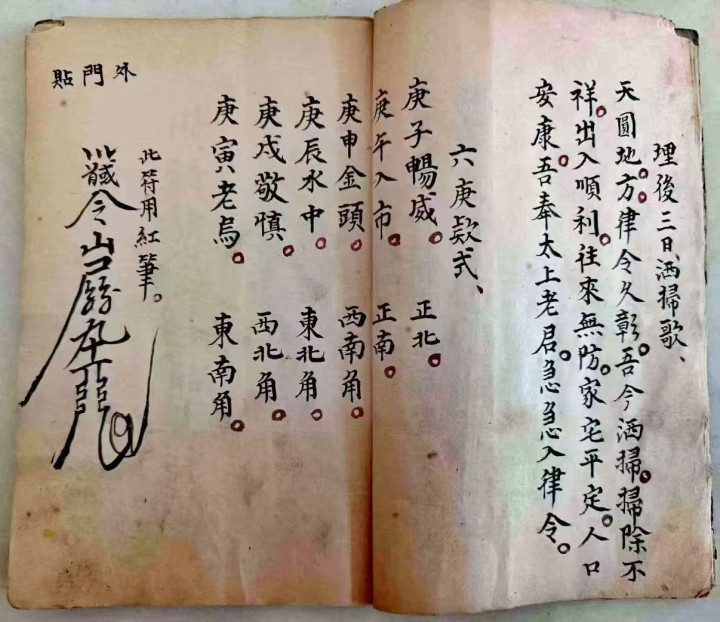 埋後三日、洒掃歌、
天圓地方。律令久彰。吾今洒掃。掃除不
祥。出入順利。往來無防。家宅平定。人口
安康。吾奉太上老君。急急入律令。
六庚欵式、
庚子暢威。正北。
庚午入市。正南。
庚申金頭。西南角。
庚辰水中。東北角。
庚戌敬慎。西北角。
庚寅老烏。東南角。
外門貼
此符用紅筆。
令